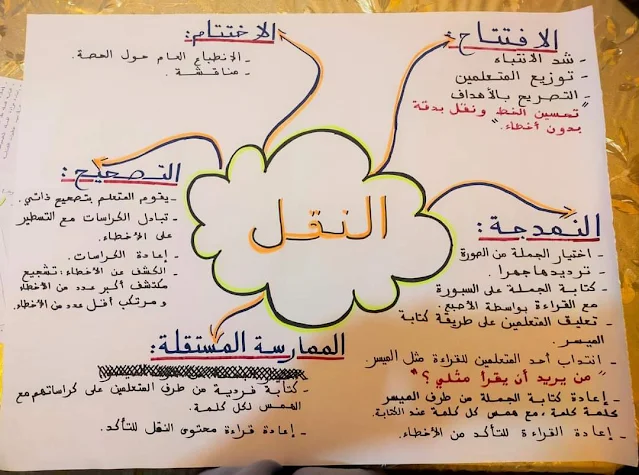 النقل
الافتتاح:
- شد الانتباه
- توزيع المتعلمين
- التصريح بالأهداف
"تحسين الخط ونقل بدقة
بدون أخطاء."
النمذجة:
- اختيار الجملة من الصورة
- ترديدها جهرا
- كتابة الجملة على السبورة
مع القراءة بواسطة الأصبع.
- تعليق المتعلمين على طريقة كتابة
الميسر.
- انتداب أحد المتعلمين للقراءة مثل الميسر.
"من يريد أن يقرأ مثلي؟"
- إعادة كتابة الجملة من طرف الميسر
كلمة كلمة، مع همس كل كلمة عند الكتابة.
- إعادة القراءة للتأكد من الأخطاء.
الممارسة المستقلة:
- كتابة فردية من طرف المتعلمين على كراساتهم مع
الهمس لكل كلمة.
- إعادة قراءة محتوى النقل للتأكد.
التصحيح:
- يقوم المتعلم بتصحيح ذاتي.
- تبادل الكراسات مع التسطير
على الأخطاء.
- إعادة الكراسات.
- الكشف عن الأخطاء: تشجيع
مكتشف أكبر عدد من الأخطاء
ومرتكب أقل عدد من الأخطاء.
الاختتام:
- الانطباع العام حول الحصة.
- مناقشة.